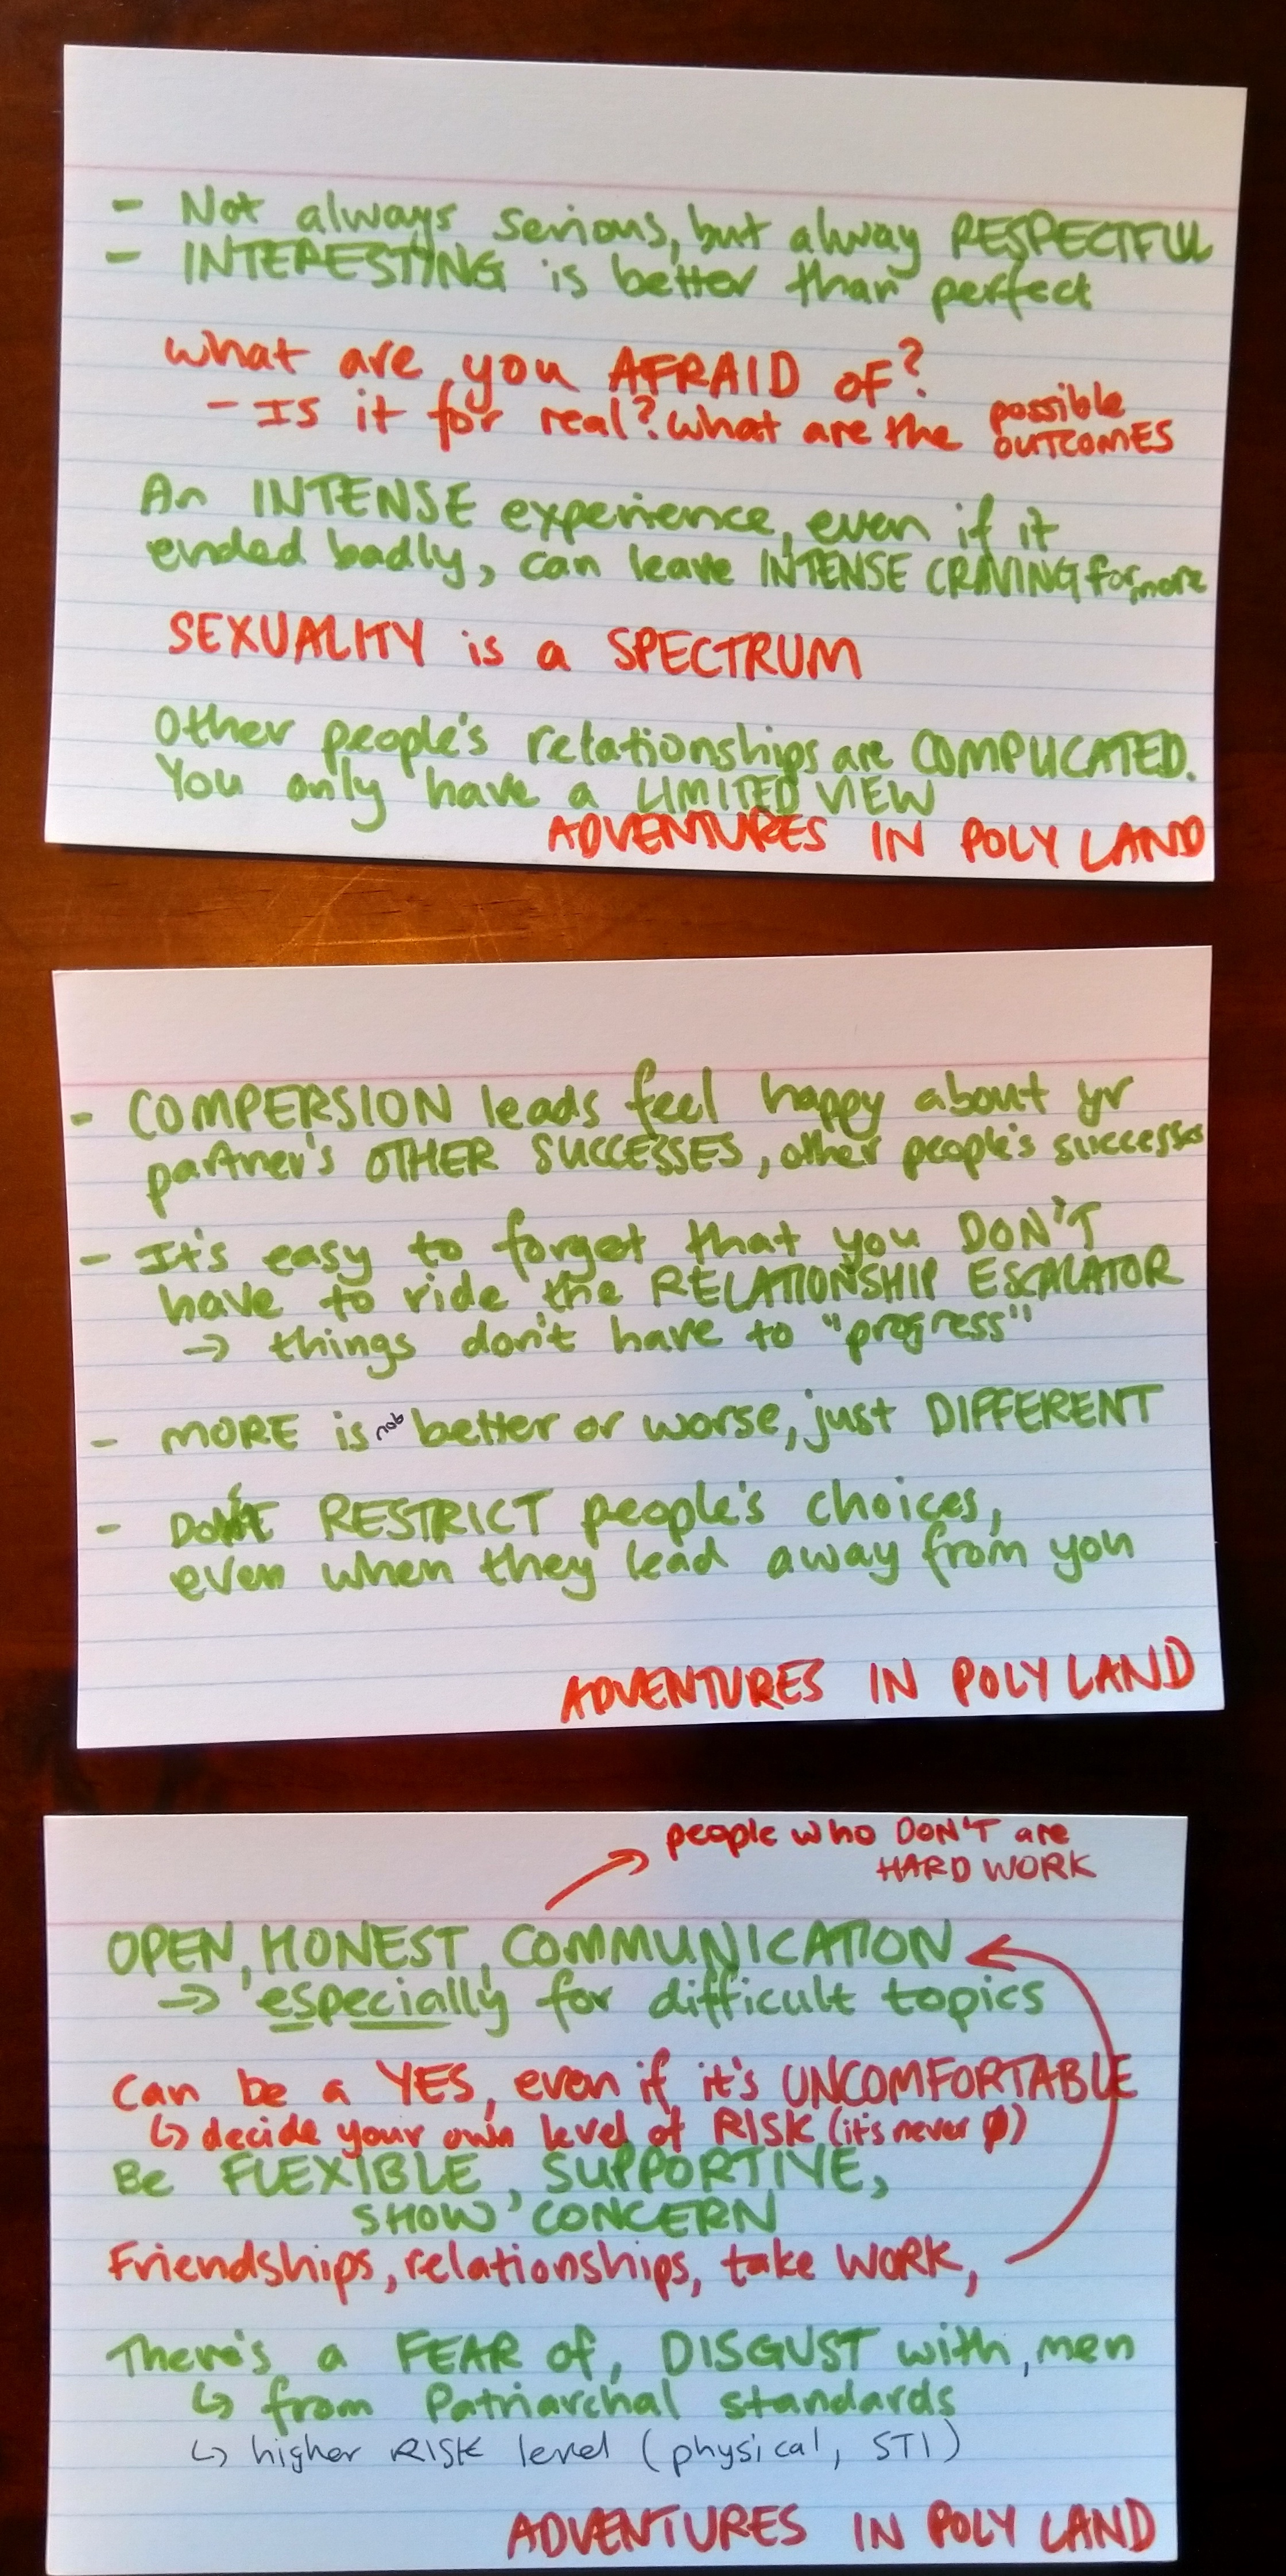 - Not always serious, but alway RESPECTFUL
- INTERESTING is better than perfect
What are you AFRAID of?
- Is it for real? What are the possible OUTCOMES
An INTENSE experience, even if it
ended badly, can leave INTENSE CRAVING for more
SEXUALITY is a SPECTRUM
Other people's relationships are COMPLICATED.
You only have a LIMITED VIEW
ADVENTURES IN POLY LAND
- COMPERSION leads feel happy about yr
partner's OTHER SUCCESSES, other people's successes
- It's easy to forget that you DON'T
have to ride the RELATIONSHIP ESCALATOR
→ things don't have to "progress"
- MORE is not better or worse, just DIFFERENT
- DON'T RESTRICT people's choices,
even when they lead away from you
ADVENTURES IN POLY LAND
people who DON'T are
HARD WORK
OPEN, HONEST, COMMUNICATION
→ especially for difficult topics
Can be a YES, even if it's UNCOMFORTABLE
↳ decide your own level of RISK (it's never 0)
Be FLEXIBLE, SUPPORTIVE,
SHOW CONCERN
Friendships, relationships, take WORK,
There's a FEAR of, DISGUST with, men
↳ from Patriarchal standards
↳ higher RISK level (physical, STI)
ADVENTURES IN POLY LAND